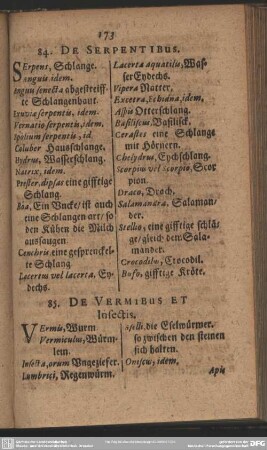 173
84. DE SERPENTIBUS.
SErpens, Schlange.
Anguis, idem.
Anguin senecta abgestreiff-
te Schlangenhaut.
Exuvia serpentis, idem.
Vernatio serpentis, idem.
Spolium serpentis, id.
Coluber Hausschlange.
Hydrus, Wasserschlang.
Natrix, idem.
Prester, dipsas eine gifftige
Schlang.
Boa, Ein Uncke/ ist auch
eine Schlangen art/ so
den Kühen die Milch
aussaugen.
Cenchris, eine gesprenckel-
te Schlang
Lacertus vel lacerta, Ey-
dechs.
Lacerta aquatilis, Was-
ser Eydechs.
Vipera Natter,
Excetra, Echidna, idem,
Aspis Otterschlang.
Basiliscus, Basilisk.
Cerastes eine Schlange
mit Hörnern.
Chelydrus, Eychschlang.
Scorpius vel scorpio, Scor
pion.
Draco, Drach.
Salamandra. Salaman-
der.
Stellio, eine gifftige schlä-
ge/ gleich dem Sala-
mander.
Crocodilus, Crocodil.
Bufo, gifftige Kröte.
85. DE VERMIBUS ET
Insectis.
VErmis, Wurm
Vermiculus, Würm-
lein.
Insecta, orum Ungeziefer.
Lumbrici, Regenwürm.
Aselli, die Eselwürmer.
so zwischen den steinen
sich halten.
Oniscus, idem.
Apis